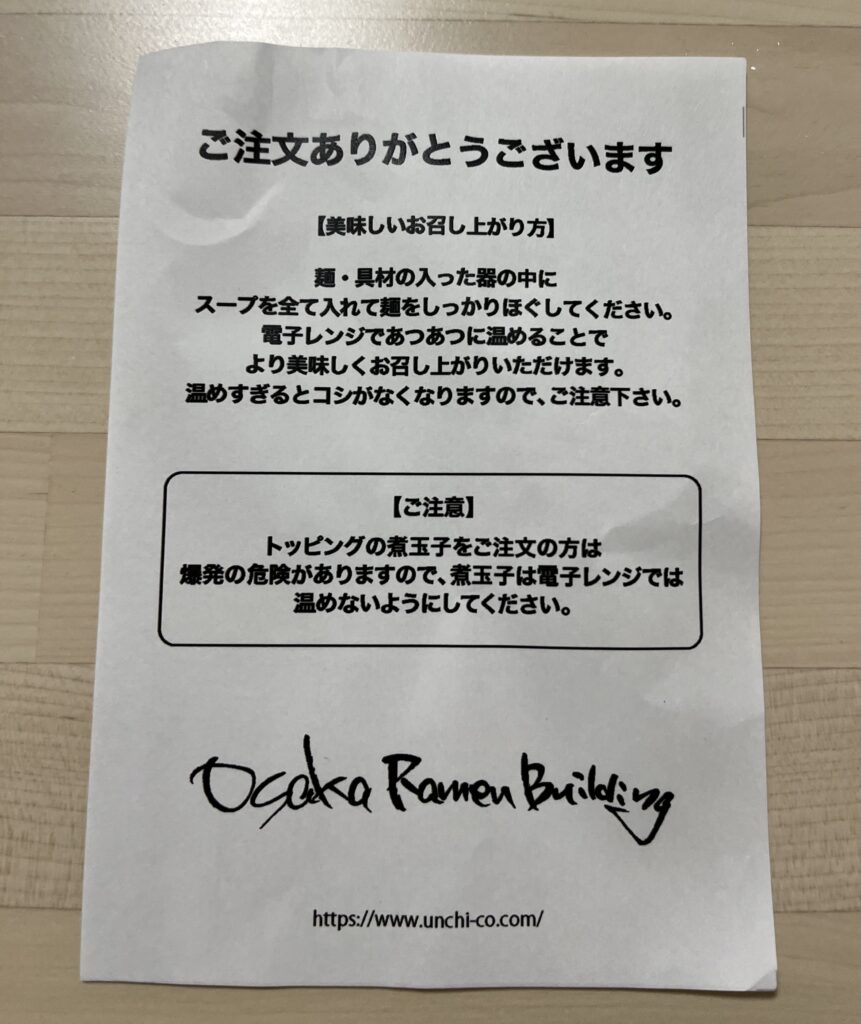 ご注文ありがとうございます
【美味しいお召し上がり方】
麺・具材の入った器の中に
スープを全て入れて麺をしっかりほぐしてください。
電子レンジであつあつに温めることで
より美味しくお召し上がりいただけます。
温めすぎるとコシがなくなりますので、ご注意下さい。
【ご注意】
トッピングの煮玉子をご注文の方は
爆発の危険がありますので、煮玉子は電子レンジでは
温めないようにしてください。
Osaka Ramen Building
https://www.unchi-co.com/